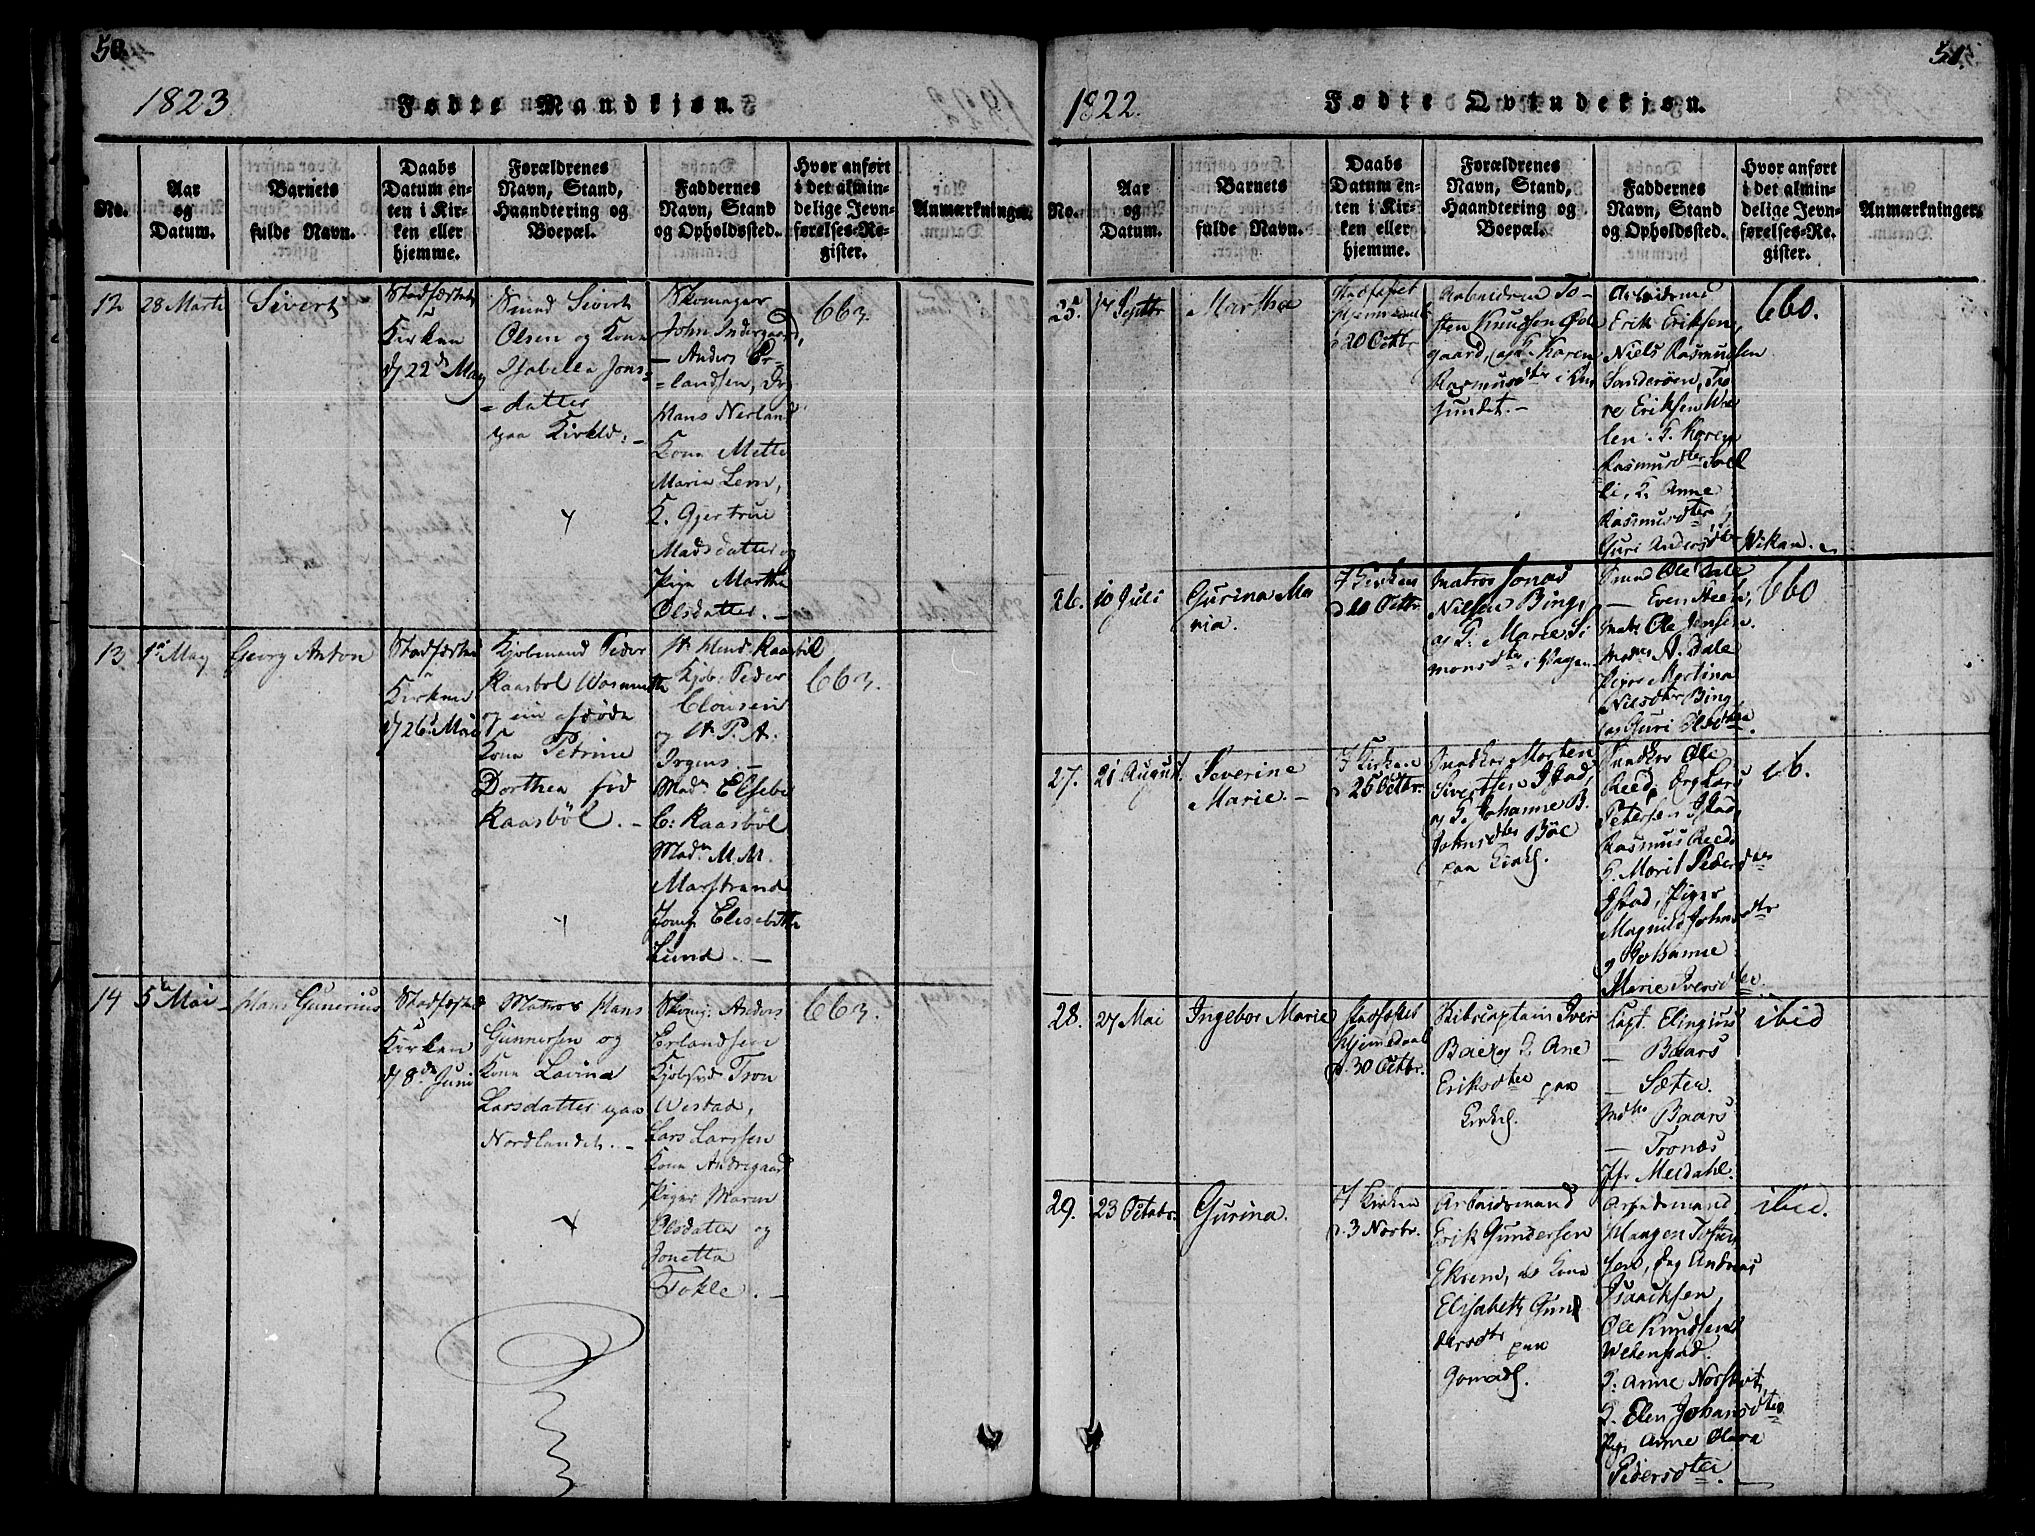 50.
1823.
Fødte Mandkjøn.
No.
Aar
og
Datum.
Barnets
fulde Navn.
Daabs
Datum en-
ten i Kir-
ken eller
hjemme.
Forældrenes
Navn, Stand,
Haandtering og
Boepæl.
Faddernes
Navn, Stand
og Opholdssted.
Hvor anført
i det almin-
delige Jevn-
førelses-Re-
gister.
Anmærkninger.
12
28 Marts
Sivert
Stadfæstet
Kirken
d 22de May
Smed Sivert
Olsen og Kone
Isabella Jons-
datter
paa Kirkld.
Skomager
John Indergaard,
Anders Er-
landsen,
Hans Nerland
Kone Mette
Maria Lem,
K. Gjertrue
Madsdatter og
Pige Marthe
Olsdatter.
663.
13.
1ste May
Georg Anton
Stadfæstet
Kirken
d 26d Mai
Kjøbmand Peder
Raasbøl Wasmuth
og
Kone Petrine
Dorthea fød
Raasbøl.
Kjøb. Peder
Clousen
og Hr. P. A.
Irgens.
Madm Elsebe
C: Raasbøl
Madm M. M.
Marstrand
Jomf. Elisabeth
Lund.
663.
14
5te Mai
Hans Gunerius
Stadfæstet
Kirken
d 8de Juni
Matros Hans
Gunnersen og
Kone Lavina
Larsdatter paa
Nordlandet.
Skomg. Anders
Erlandsen
Kjøbsvd. Tron
Westad,
Lars Larssen
Kone Andregaard
Piger Maren
Olsdatter og
Jonetta
Tokle.
663.
51.
1822.
Fødte Qvindekjøn.
No.
Aar
og
Datum.
Barnets
fulde Navn.
Daabs
Datum en-
ten i Kir-
ken eller
hjemme.
Forældrenes
Navn, Stand,
Haandtering og
Boepæl.
Faddernes
Navn, Stand
og Opholdssted.
Hvor anført
i det almin-
delige Jevn-
førelses-Re-
gister.
Anmærkninger.
25.
17 Septbr
Martha
Stadfæstet
Hjemmedaab
d 20 Octbr
Arbeidsm To-
sten Knudsen Øde
gaard, og K. Karen
Rasmusdtr i
sundet.
Arbeidsmd
Erik Eriksen,
Niels Rasmussen
Sanderøen, To
re Eriksen
K. Karen
Rasmusdtr
K. Anne
Rasmusdter
Guri Andersdtr Wikan.
660.
26.
10 Juli
Gurina Ma
ria.
I Kirken
d 20 Octbr.
Matros Jonas
Nilsen Bing,
og K. Marie Si
monsdtr i Vagen
Smed Ole Dale
Even Steen,
Matr. Ole Jensen.
Mads A. Dale
Piger Martina
Nilsdtr Bing
og Guri Olsdtter.
660
27.
21 August.
Severine
Marie.
I Kirken
d 25 Octbr.
Snedker Morten
Sivertsen Istad,
og K. Johanne B.
Johnsdtr Bøe
paa Kirkl.
Snedker Ole
Reed, og Lars
Petersen Istad,
Rasmus Reed.
K. Marit Pedersdter
Istad, Piger
Magnild Johnsdtr
og Johanne
Marie Iversdter.
ib.
28.
27 Mai
Ingebor Marie
Stadfæstet
Hjemedaab
d. 30 Octbr.
Skibscaptain Iver
Bae og K. Ane
Eriksdter paa
Kirkel.
Capt. Elingius
— Baars
— Sæter
Baars
— Tronæs
Jfr Meldahl.
ibid
29.
23 Octobr.
Gurina.
I Kirken
d. 3 Novbr.
Arbeidsmand
Erik Gundersen
Ekrem, og Kone
Elisabeth Gun
dersdtr paa
Gomael.
Arbeidsmand
Haagen Tosten
sen, Dag Andreas
Isaacksen,
Ole Knudsen
Webenstad.
K. Anne Norshvit,
K. Elen Johansdter
Pige Anne Olava
Pedersdter.
ibid.